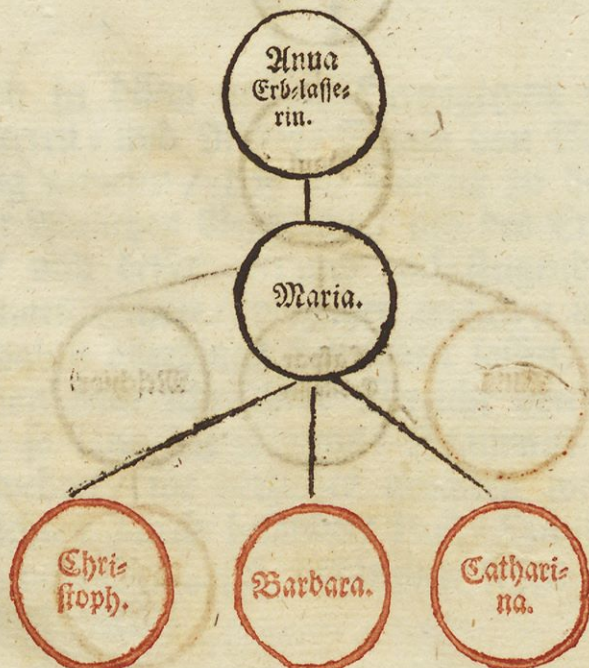 Anna
Erb-lasse-
rin.
Maria.
Chri-
stoph.
Barbara.
Cathari-
na.